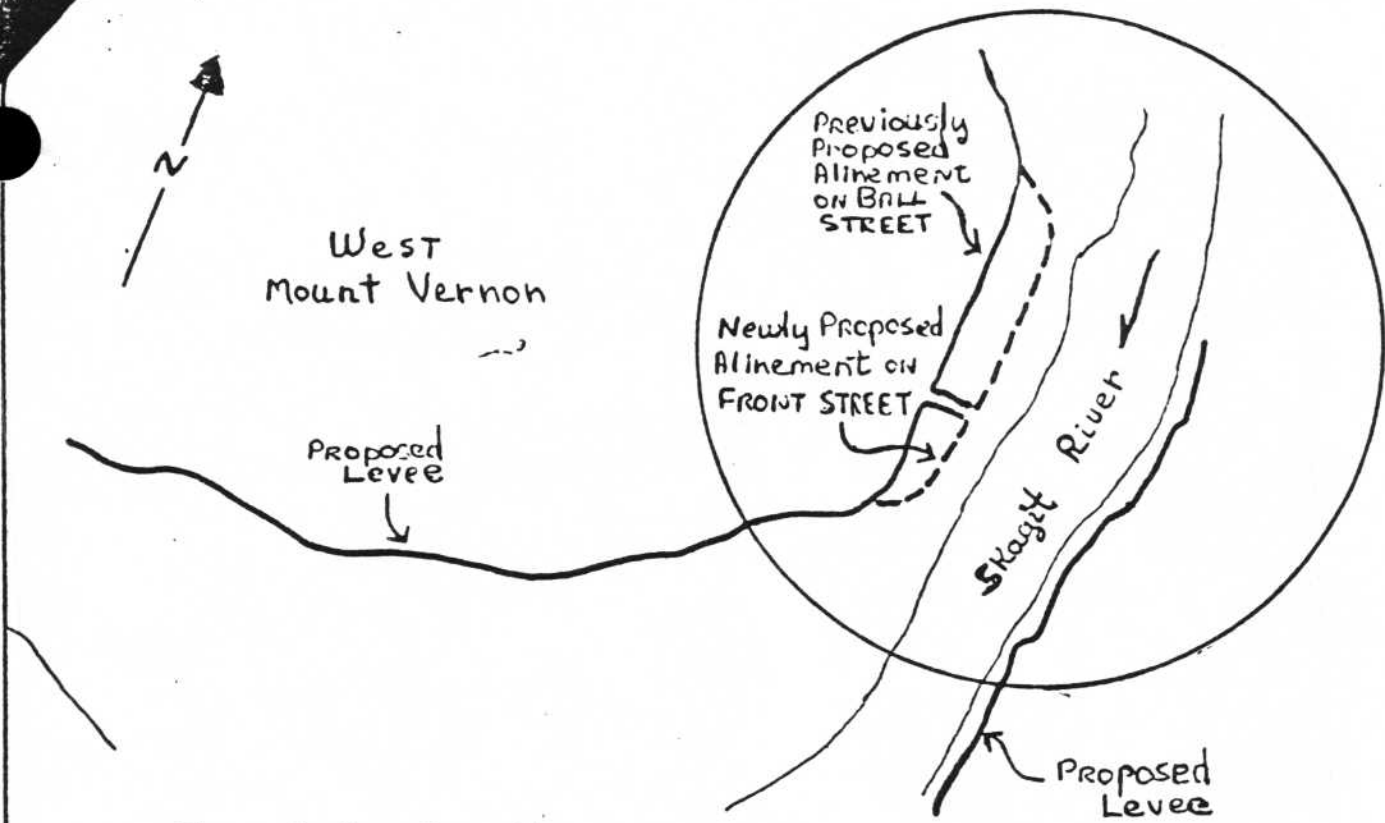 N
West
Mount Vernon
Previously
Proposed
Alinement
on Ball
STREET
Newly Proposed
Alinement on
FRONT STREET
Proposed
Levee
Skagit River
Proposed
Levee